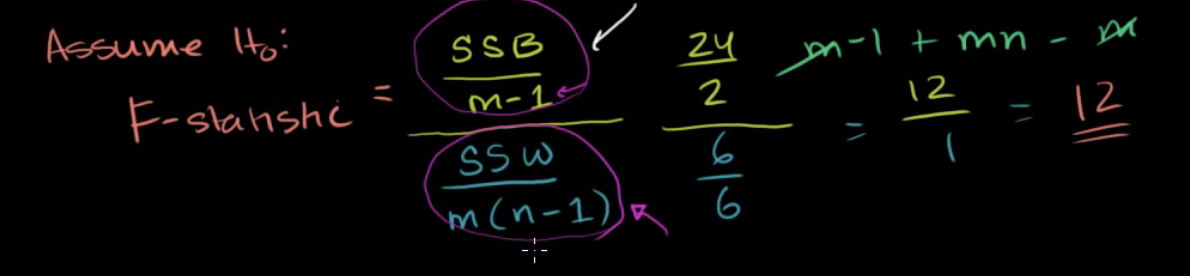 Assume H₀:
F-statistic = SSB / m-1 / SSW / m(n-1)
24 / 2 / 6 / 6 = 12 / 1 = 12
m-1 + mn - m